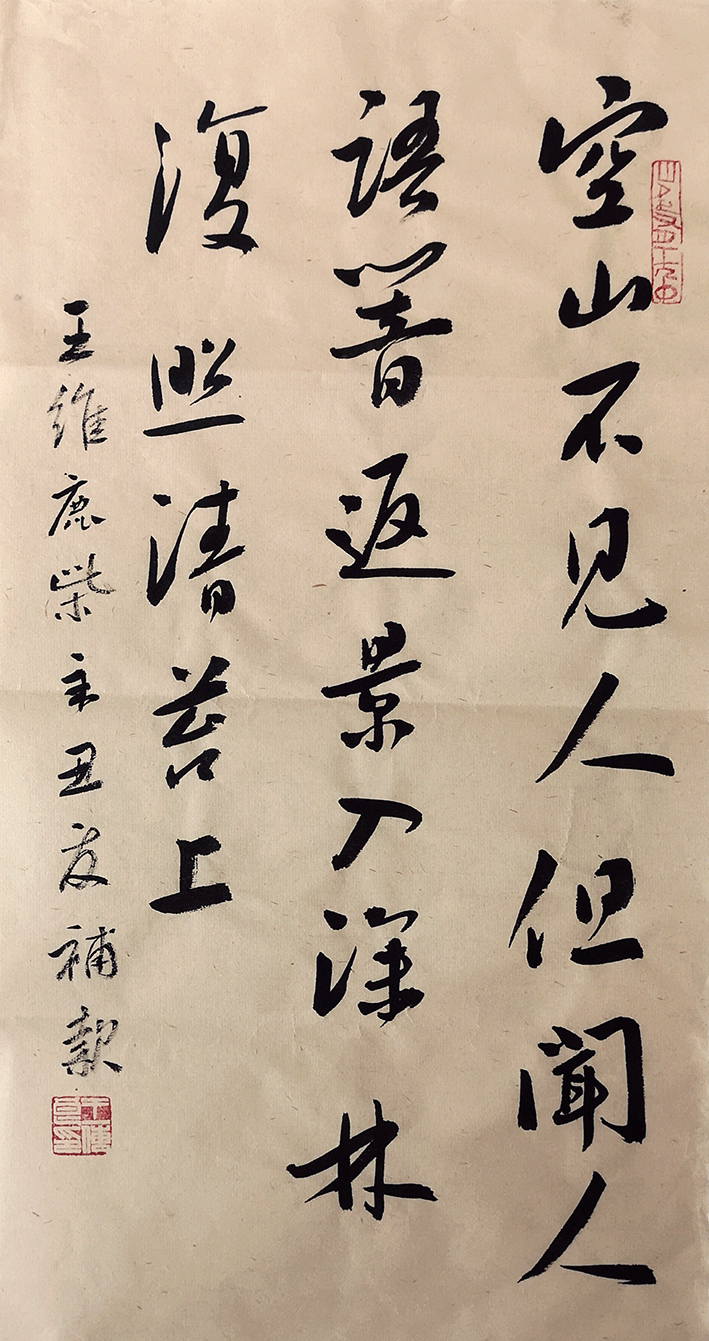 空山不见人但聞人
語響返景入深林
復照清苔上
王維鹿柴辛丑夏補款